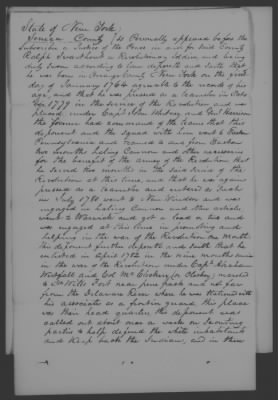 State of New York
County } SS Personally appeared before the
Subscriber a Justice of the Peace in and for said County
Ralph a Revolutionary Soldier and being
duly Sworn according to law deposeth and saith that
he was born in Orange County New York on the first
day of January 1764 agreeable to the records of his
age, and that he was pressed as a teamster in
1779 in the service of the Revolution and was
placed under Capt John and
the former had command of the teams that this
deponent and the squad with him went to Easton
Pennsylvania and to and from Easton
Cannon and other
for the benefit of the army of the Revolution that
he served two months in the said service of the
Revolution at this time, and that he was again
pressed as a teamster and entered as such
in July 1780 went to New Windsor and was
engaged in Cannon and other articles
went to Warwick and got a load or two and
was engaged at this time in and
helping in the war of the Revolution one month
this deponent further deposeth and saith that he
enlisted in April 1782 in the nine months service
in the war of the Revolution under Capt Abraham
Westfall and Col Mc marched
to Fort near and not far
from the Delaware River when he was stationed with
his associates as a frontier guard this place
was their head quarters the deponent was
called out about once a week on Scouting
parties to help defend the white inhabitants
and keep back the Indians, and in them